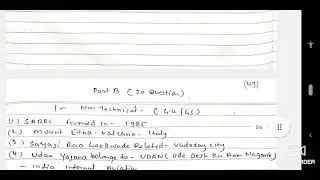 (49)
Part B (20 Question)
1- Non Technical - ( G.K/GS)
(1) SARRC formed in - 1985
(2) Mount Etna - Valcano - Italy
(3) Sayagi Rao Gaekwade Releted - Vadodag city
(4) Udan Yojana belonge to - UDAN (Ude Desh ka Aam Nagarik)
- India internal aviation